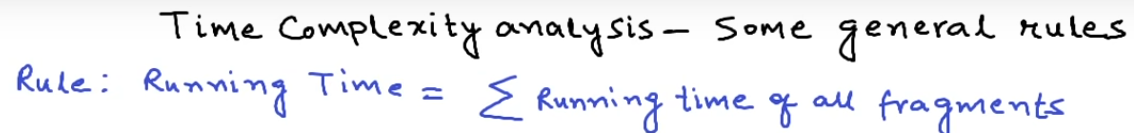 Time Complexity analysis – Some general rules
Rule: Running Time = ∑ Running time of all fragments